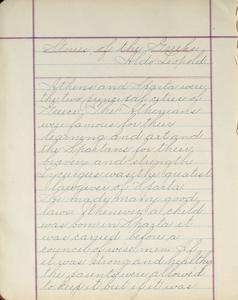 Stories of the Greeks
Aldo Leopold
Athens and Sparta were
the two principal cities of
Greece. The Athenians
were famous for their
learning and art and
the Spartans for their
bravery and strength
Lycurgus was the greatest
lawgiver of Sparta
He made many good
laws. Whenever a child
was born in Sparta it
was carried before a
council of wise men. If
it was strong and healthy
the parents were allowed
to keep it but if it was